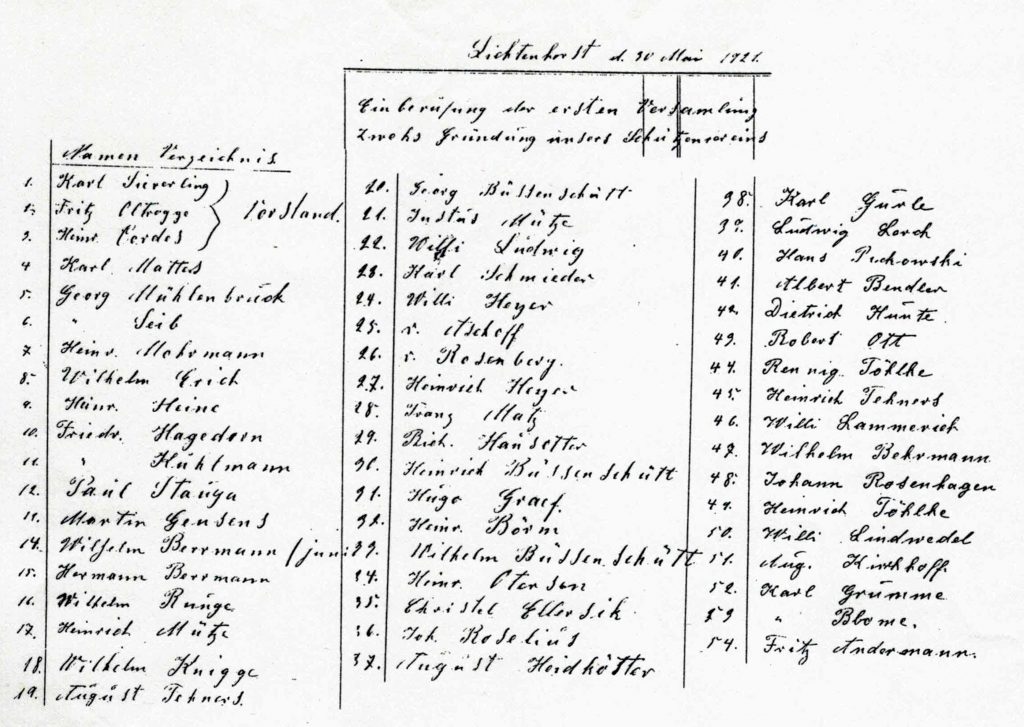 Lichtenhorst d. 30 Mai 1921.
Einberüfung der ersten Versamling
zwehs Gründung ünsers Schützenvereins
Namen Verzeichnis
1. Karl Sieverling
2. Fritz Oltrogge } Vorstand.
3. Heinr. Cordes
4 Karl. Mattes
5. Georg Mühlenbrück
6. " Seib
7 Heinr. Mohrmann
8. Wilhelm Erich
9. Heinr. Heine
10. Friedr. Hagedorn
11. " Kühlmann
12. Paül Stauga
13. Martin Geusens
14. Wilhelm Berrmann / jun:
15. Hermann Berrmann
16. Wilhelm Runge
17. Heinrich Mütze
18. Wilhelm Knigge
19. Aügüst Tehners.
20. Georg Büssenschütt
21. Jüstüs Mütze
22. Willi Lüdwig
23. Karl Schmieder
24. Willi Heyer
25. v. Aschoff
26. v. Rosenberg.
27. Heinrich Heyer
28. Franz Matz
29. Rich. Haüsotter
30. Heinrich Büssenschütt
31. Hügo Graef.
32. Heinr. Börm
33. Wilhelm Büssenschütt
34 Heinr. Otersen
35. Christel Ellersik.
36. Joh. Koseliüs
37. Aügüst Heidkötter
38. Karl Gürle
39. Lüdwig Lerch
40. Hans Pechowski
41. Albert Bendler
42. Dietrich Hünte.
43. Robert Ott
44. Rennig. Töhlke
45. Heinrich Tehners
46. Willi Lammerich
47. Wilhelm Behrmann
48. Johann Rosenhagen
49. Heinrich Töhlke
50. Willi Lindwedel
51. Aüg. Kirchhoff.
52. Karl Grümme
53 " Blome.
54. Fritz Andermann.